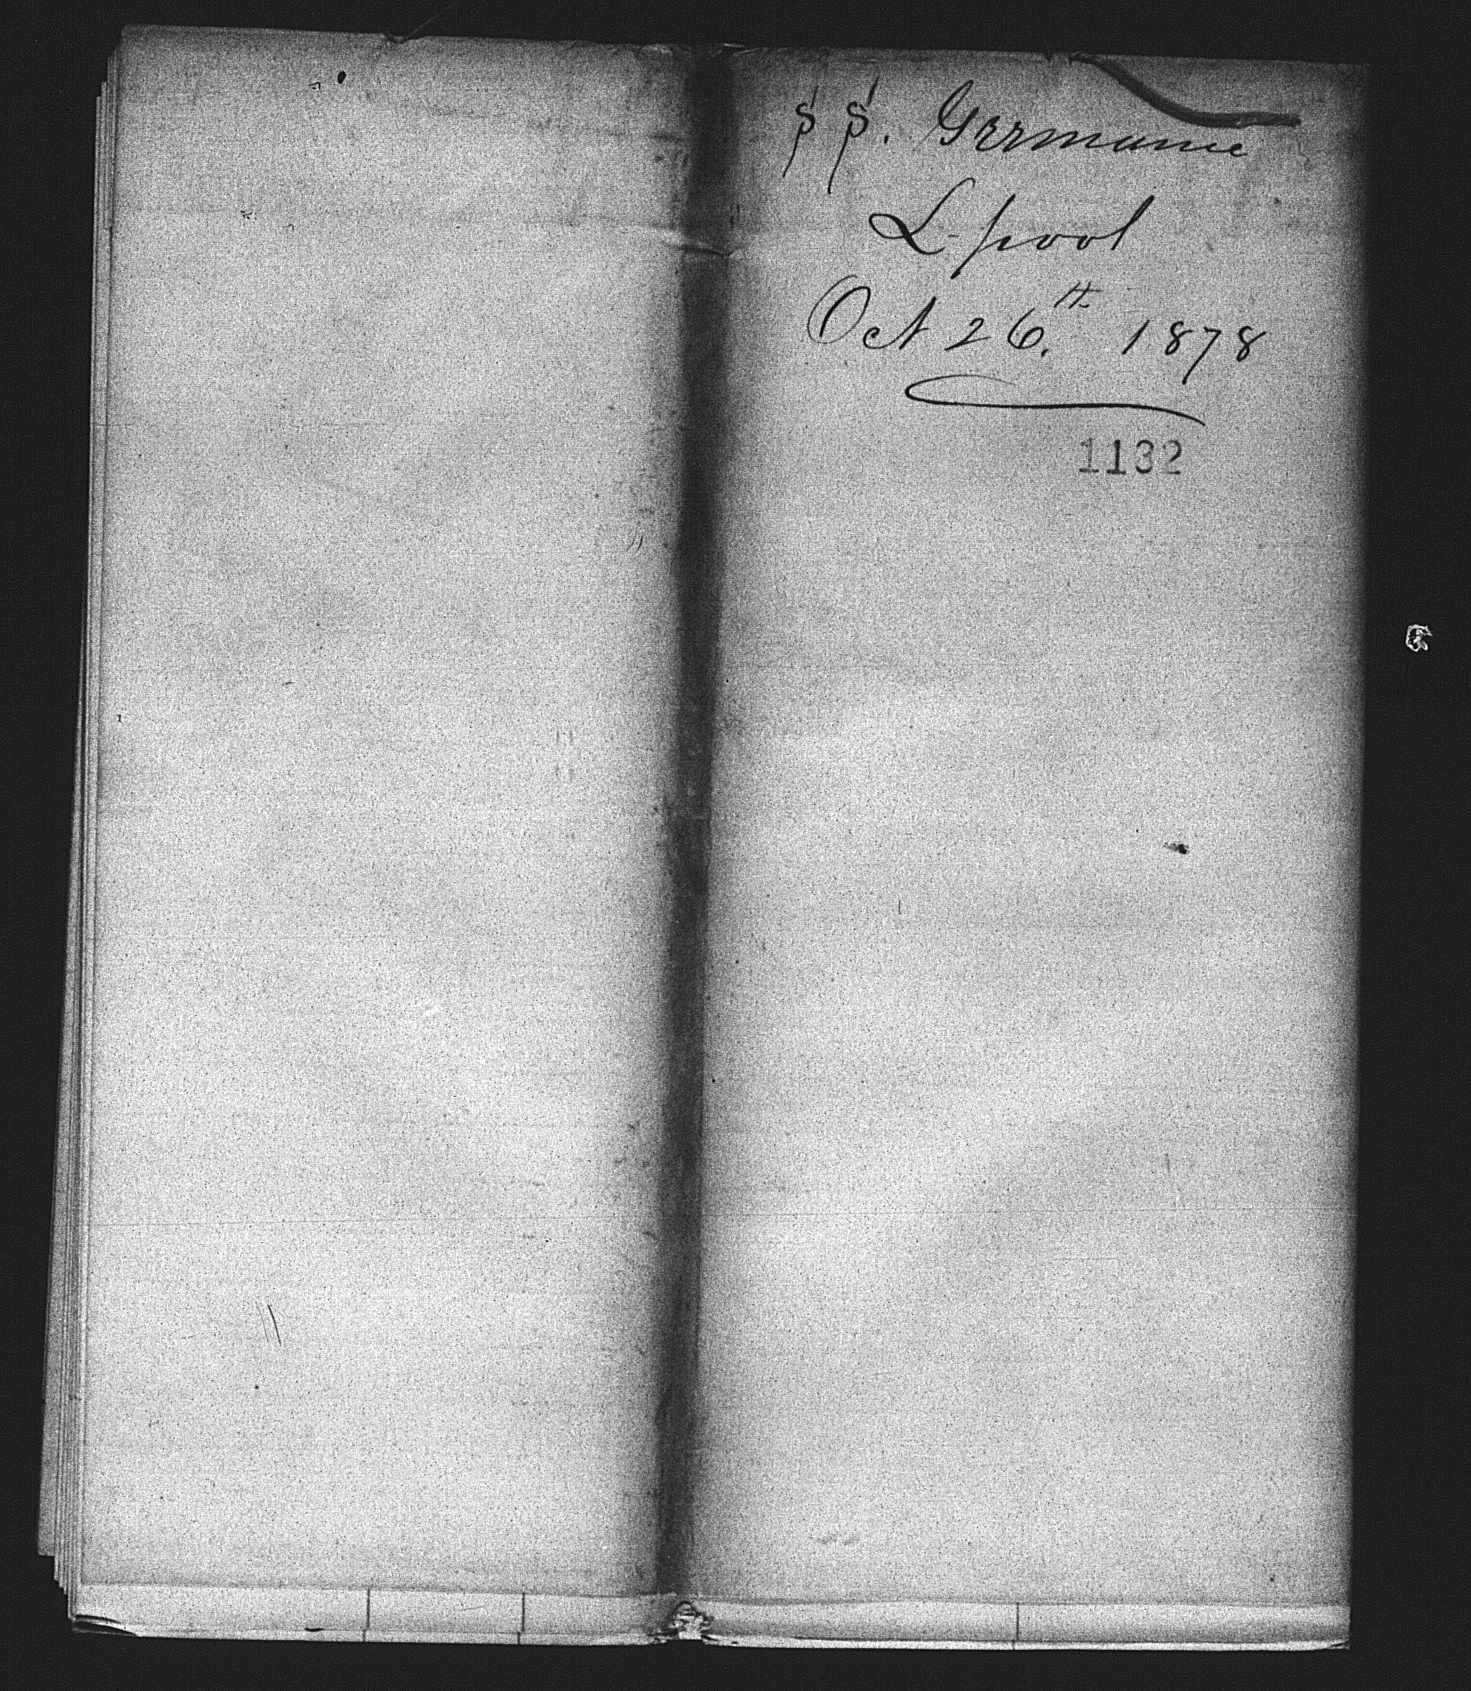 SS. Germanic
L-pool
Oct 26.th 1878
1132